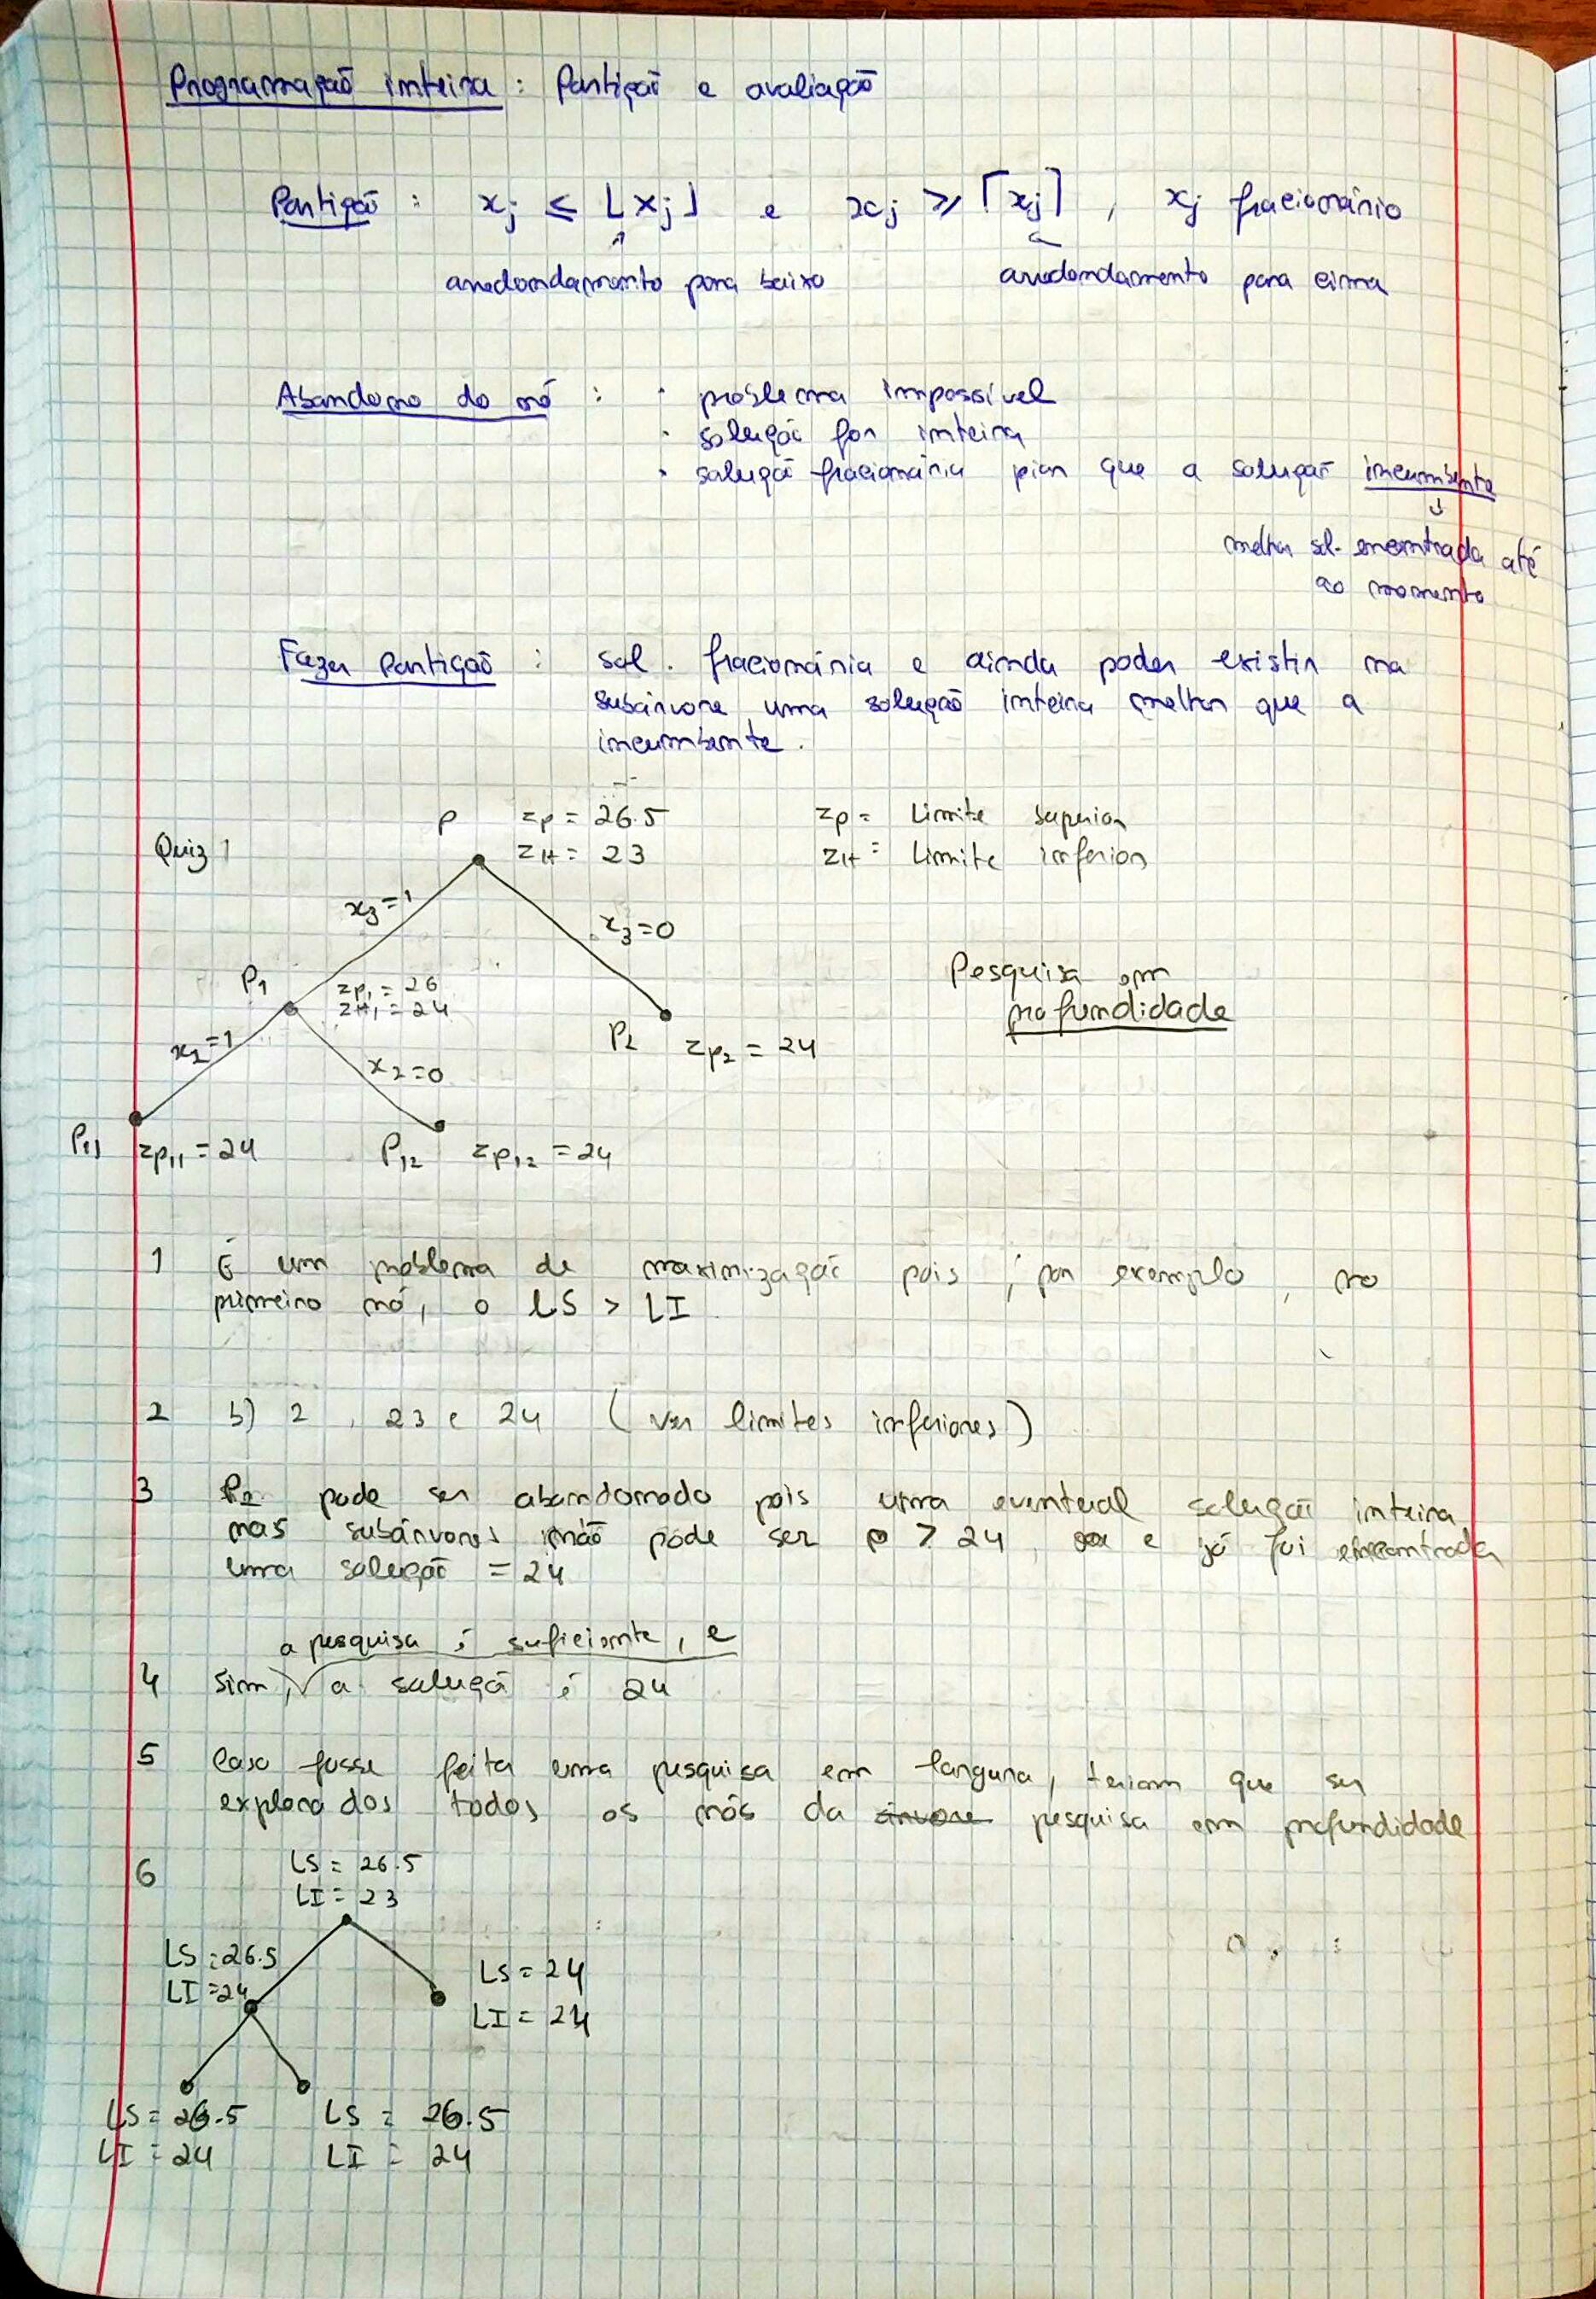 Programação inteira : Partição e avaliação
Partição : xj ≤ ⌊xj⌋ e xj ≥ ⌈xj⌉ , xj fracionário
arredondamento para baixo arredondamento para cima
Abandono do nó : · problema impossível
· solução for inteira
· solução fracionária pior que a solução incumbente
↓
melhor sol. encontrada até
ao momento
Fazer Partição : sol. fracionária e ainda poder existir na
subárvore uma solução inteira melhor que a
incumbente.
Quiz 1
P zp = 26.5
zH = 23
zp = Limite superior
zH = Limite inferior
x3=1
x3=0
P1
zp1 = 26
zH1 = 24
Pesquisa em
profundidade
P2 zp2 = 24
x2=1
x2=0
P11 zp11 = 24
P12 zp12 = 24
1 É um problema de maximização pois, por exemplo, no
primeiro nó, o LS > LI
2 b) 2 , 23 e 24 (ver limites inferiores)
3 P2 pode ser abandonado pois uma eventual solução inteira
nas subárvores não pode ser > 24, e já foi encontrada
uma solução = 24
a pesquisa é suficiente, e
4 Sim, a solução é 24
5 Caso fosse feita uma pesquisa em largura, teriam que ser
explorados todos os nós da árvore pesquisa em profundidade
6
LS = 26.5
LI = 23
LS = 26.5
LI = 24
LS = 24
LI = 24
LS = 26.5
LI = 24
LS = 26.5
LI = 24